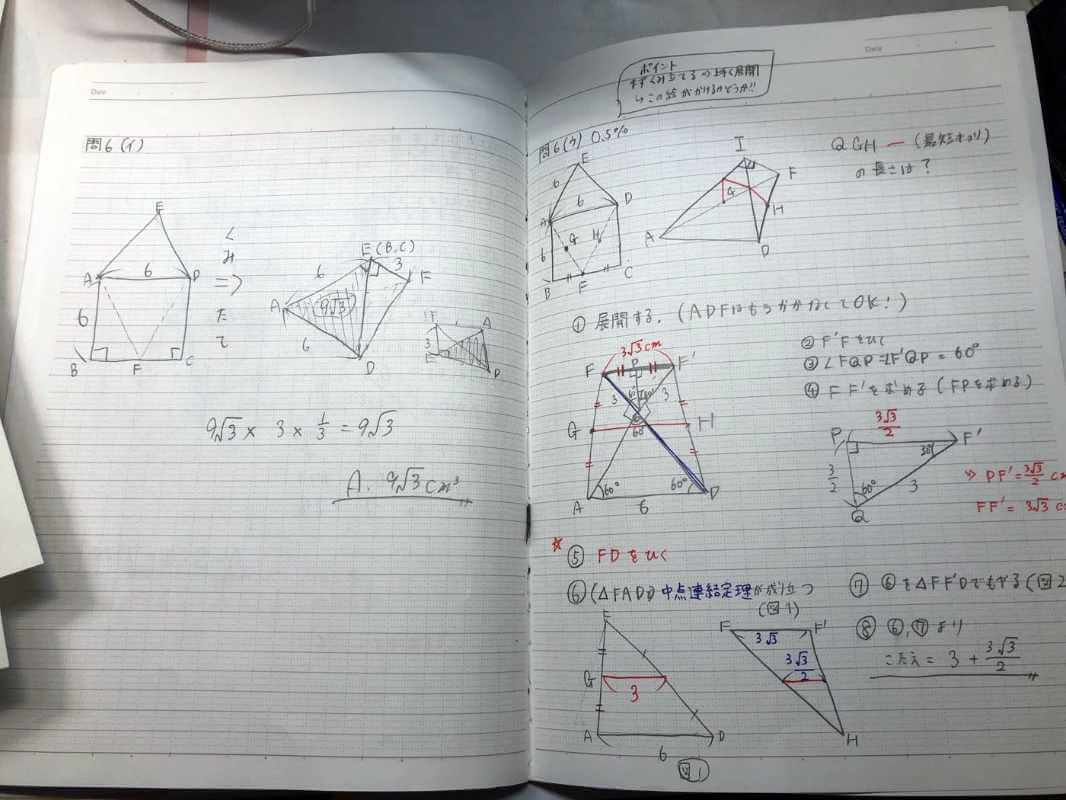 Date
問6(イ)
E
A
6
D
6
B
F
C
くみたて
⇒
E(B,C)
6
3
F
A
9√3
6
D
F
A
3
E
D
9√3 × 3 × 1/3 = 9√3
A. 9√3 cm³
Date
ポイント
まずくみ立てるの上手く展開
↳この絵がかけるかどうか!!
問6(ウ) 0.5%
E
6
6
D
A
6
G
H
B
F
C
I
F
G
H
A
D
Q GH ー (最短キョリ)
の長さは?
① 展開する。(ADFはもうかかなくてOK!)
3√3cm
F
P
F'
3
3
G
H
60°
A
60°
60°
D
6
② F'Fをひく
③ ∠FQP=∠F'QP = 60°
④ FF'を求める(FPを求める)
3√3/2
P
F'
30°
3/2
60°
3
Q
⇒ PF'=3√3/2 c
FF'= 3√3 c
☆
⑤ FDをひく
⑥ (△FAD) 中点連結定理が成り立つ
(図1)
F
G
3
A
D
6
図1
F
F'
3√3
3√3/2
H
⑦ ⑥を△FF'Dでもやる(図2
⑧ ⑥,⑦より
こたえ = 3 + 3√3/2